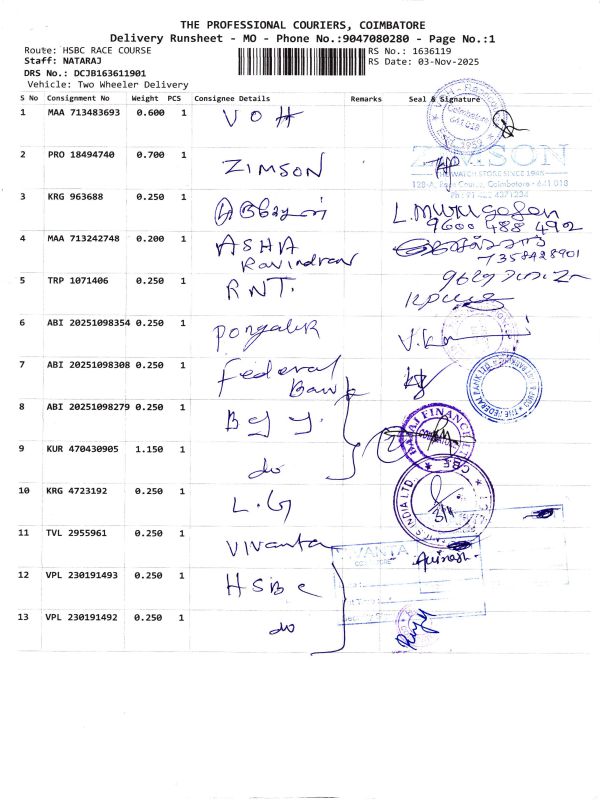 THE PROFESSIONAL COURIERS, COIMBATORE
Delivery Runsheet - MO - Phone No.:9047080280 - Page No.:1
Route: HSBC RACE COURSE
RS No.: 1636119
Staff: NATARAJ
RS Date: 03-Nov-2025
DRS No.: DCJB163611901
Vehicle: Two Wheeler Delivery
S No Consignment No Weight PCS Consignee Details Remarks Seal & Signature
1 MAA 713483693 0.600 1 VOH
Coimbatore
641 018
2 PRO 18494740 0.700 1 ZIMSON
ZIMSON
THE WATCH STORE SINCE 1948
128-A, Race Course, Coimbatore - 641 018
3 KRG 963688 0.250 1 L.Murugesan
9600 488 492
4 MAA 713242748 0.200 1 ASHA
Ravindran
7358428901
5 TRP 1071406 0.250 1 RNT.
6 ABI 20251098354 0.250 1 Pongalur
7 ABI 20251098308 0.250 1 Federal
Bank
THE FEDERAL BANK LTD.
8 ABI 20251098279 0.250 1
BAJAJ FINANCE
CBE
9 KUR 470430905 1.150 1 do
10 KRG 4723192 0.250 1 L.G
INDIA LTD.
3/11
11 TVL 2955961 0.250 1 Vivanta
VIVANTA
Avinash.
12 VPL 230191493 0.250 1 HSBC
13 VPL 230191492 0.250 1 do